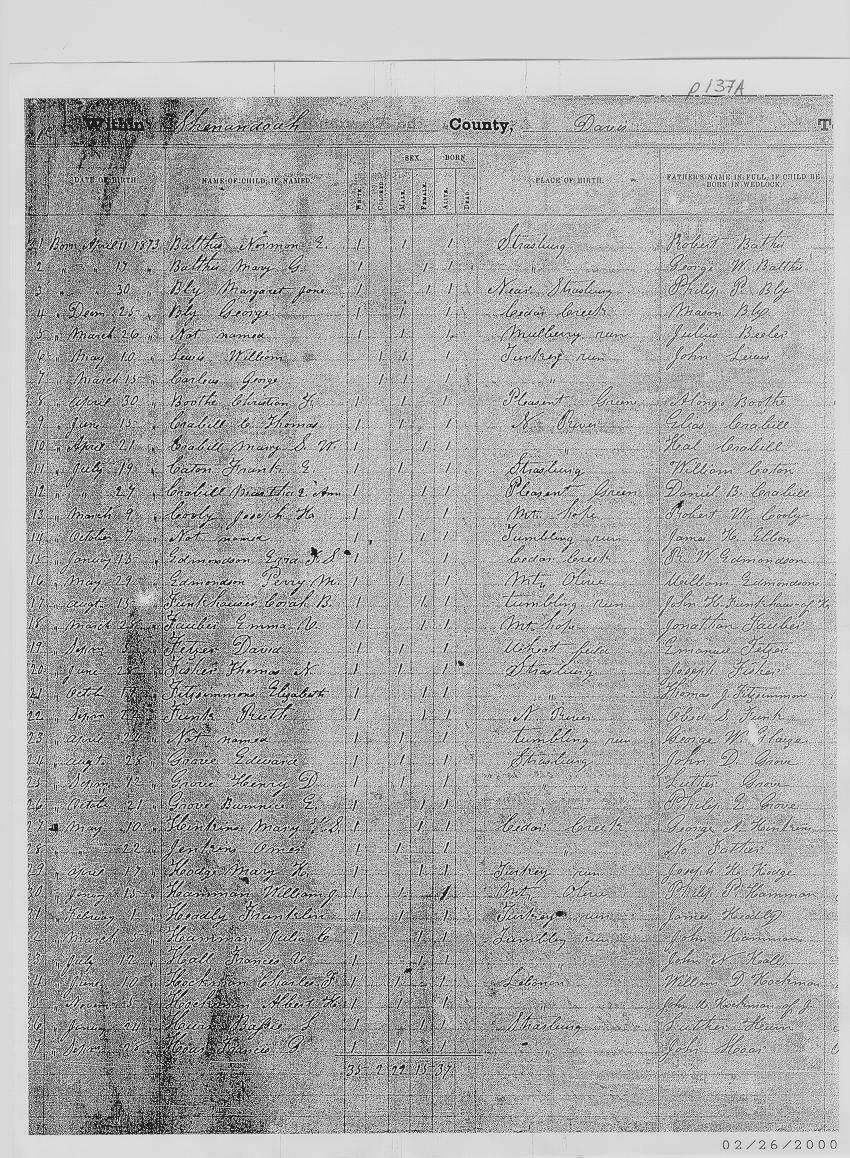 p 137A
Within Shenandoah County, Davis T
DATE OF BIRTH. NAME OF CHILD, IF NAMED. WHITE. COLORED. SEX. MALE. FEMALE. BORN ALIVE. DEAD. PLACE OF BIRTH. FATHER'S NAME IN FULL, IF CHILD BE BORN IN WEDLOCK.
1 Born April 11 1873 Balthis Norman E. 1 1 1 Strasburg Robert Balthis
2 " " 17 " Balthis Mary G. 1 1 1 " George W. Balthis
3 " " 30 " Bly Margaret Jane 1 1 1 Near Strasburg Philip P. Bly
4 " Decm 25 " Bly George 1 1 1 Cedar Creek Mason Bly
5 " March 26 " Not named 1 1 1 Mulberry run Julius Beeler
6 " May 10 " Lewis William 1 1 1 Turkey run John Lewis
7 " March 15 " Carlous George 1 1 1 "
8 " April 30 " Boothe Christian F. 1 1 1 Pleasant Green Alongo Boothe
9 " June 15 " Crabill C. Thomas 1 1 1 N. River Elias Crabill
10 " April 21 " Crabill Mary S. W. 1 1 1 " Crabill
11 " July 19 " Eaton Frank E 1 1 1 Strasburg William Eaton
12 " " 27 " Crabill Ann 1 1 1 Pleasant Green Daniel B. Crabill
13 " March 9 " Cooly Joseph H. 1 1 1 Mt. hope Robert W. Cooly
14 " October 7 " Not named 1 1 1 Tumbling run James H.
15 " January 15 " Edmondson Ezra F. S 1 1 1 Cedar Creek R. W Edmondson
16 " May 29 " Edmondson Perry M. 1 1 1 Mt. Olive William Edmondson
17 " augt 13 " Funkhauser Corah B. 1 1 1 tumbling run John H. Funkhau- of
18 " March " Fauber Emma V. 1 1 1 Mt. hope Jonathan Fauber
19 " Fetzer David 1 1 1 Wheat field Emanuel Fetzer
20 " June " Fisher Thomas N. 1 1 1 Strasburg Joseph Fisher
21 " Octob " Fitzsimmons Elizabeth 1 1 1 " Thomas J. Fitzsimmons
22 " Funk Ruth 1 1 1 N. River Obed S. Funk
23 " april " Not named 1 1 1 tumbling run George W. Glaize
24 " augt 28 " Grove Edward 1 1 1 Strasburg John D. Grove
25 " 12 " Grove Henry D 1 1 1 " Luther Grove
26 " Octob 21 " Grove Bunnice E. 1 1 1 " Philip E Grove
27 " May 10 " Henkins Mary 1 1 1 Cedar Creek George A. Henkins
28 " " 22 " Jenkins Omer 1 1 1 " No Father
29 " april 17 " Hodge Mary H. 1 1 1 Turkey run Joseph H. Hodge
30 " 15 " Hamman William J. 1 1 1 Mt. Olive Philip P. Hamman
31 " Februay 1 " Hoadly Franklin 1 1 1 Turkey run James Hoadly
2 " March 5 " Hamman Julia C. 1 1 1 Tumbling run John Hamman
3 " July 12 " Hall Frances V. 1 1 1 " John N. Hall
4 " June 10 " Hockman Charles F 1 1 1 Lebanon William D Hockman
5 " Novem 5 " Hockman Albert H. 1 1 1 " John W Hockman of J
6 " " L 1 1 1 Strasburg Luther
1 1 1 " John
35 2 22 15 37
02/26/2000